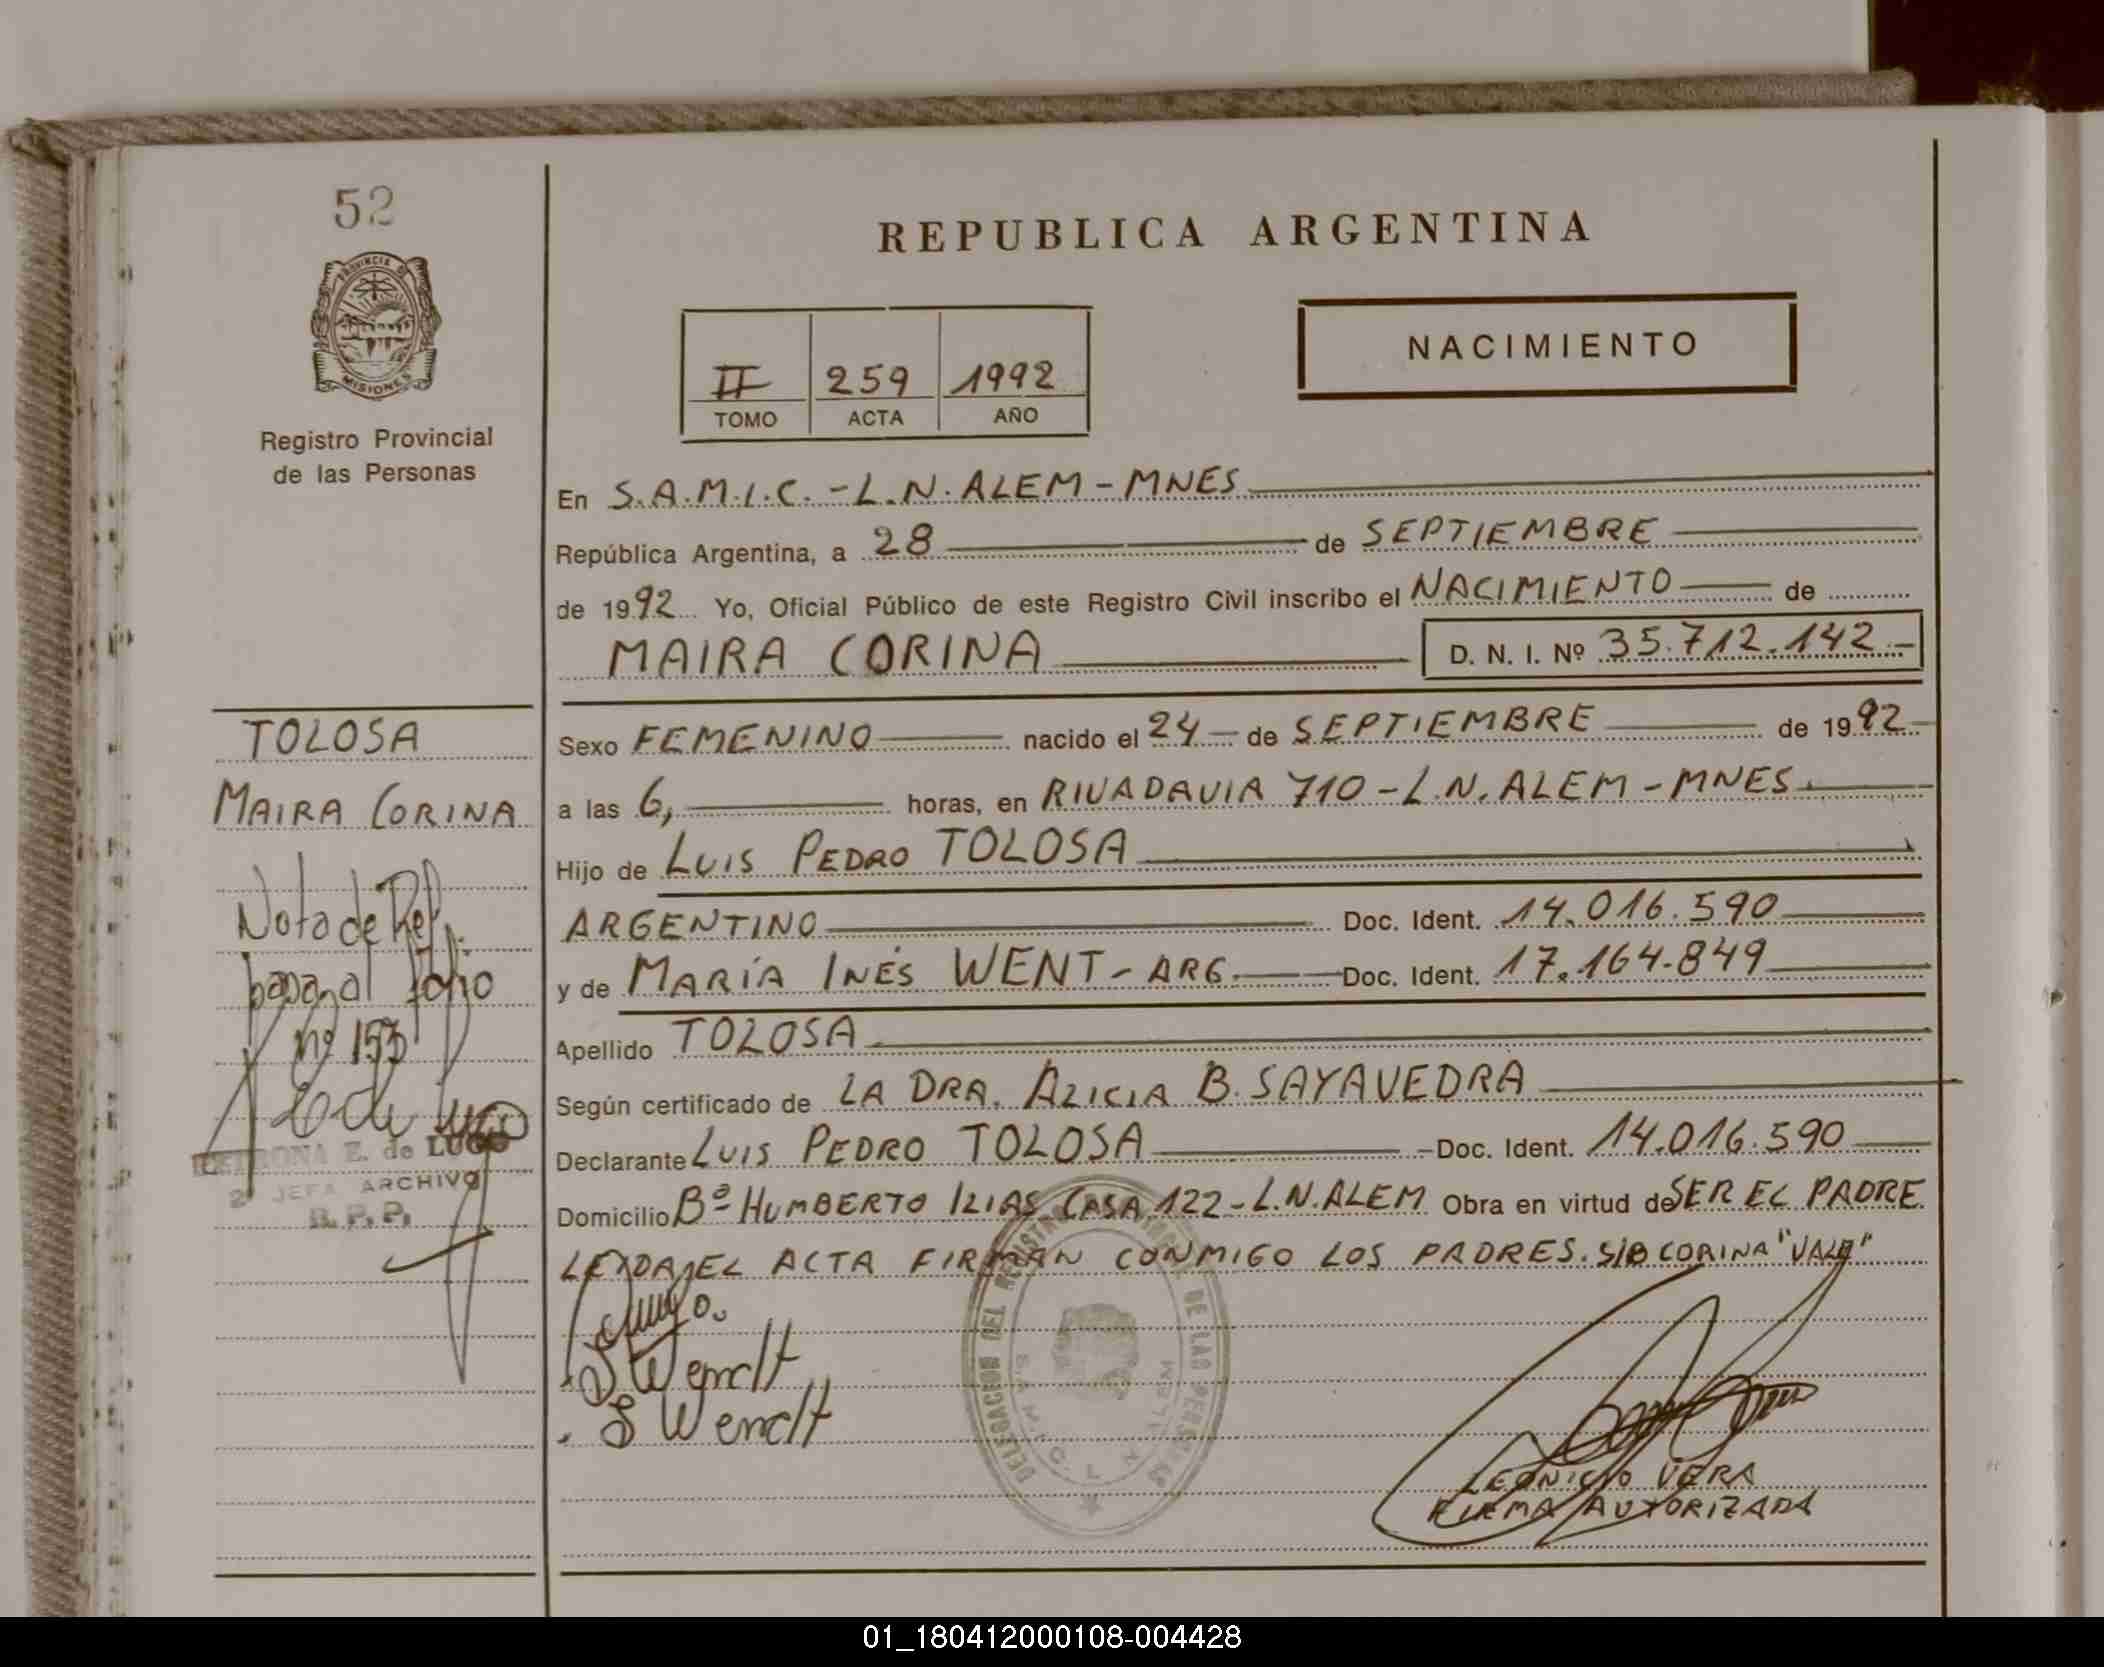 52
PROVINCIA DE
MISIONES
Registro Provincial
de las Personas
REPUBLICA ARGENTINA
II 259 1992
TOMO ACTA AÑO
NACIMIENTO
En S.A.M.I.C. - L.N. ALEM - MNES
República Argentina, a 28 de SEPTIEMBRE
de 1992 Yo, Oficial Público de este Registro Civil inscribo el NACIMIENTO de
MAIRA CORINA D. N. I. Nº 35.712.142.-
TOLOSA
MAIRA CORINA
Nota de Ref.
pasa al folio
nº 153
E. de LUGO
2º JEFA ARCHIVO
R. P. P.
Sexo FEMENINO nacido el 24 de SEPTIEMBRE de 1992
a las 6, horas, en RIVADAVIA 710 - L.N. ALEM - MNES
Hijo de LUIS PEDRO TOLOSA
ARGENTINO Doc. Ident. 14.016.590
y de MARÍA INÉS WENT - ARG. Doc. Ident. 17.164.849
Apellido TOLOSA
Según certificado de LA DRA. ALICIA B. SAYAVEDRA
Declarante LUIS PEDRO TOLOSA Doc. Ident. 14.016.590
Domicilio Bº HUMBERTO ILIAS CASA 122 - L.N. ALEM Obra en virtud de SER EL PADRE
LEIDA EL ACTA FIRMAN CONMIGO LOS PADRES. S/B CORINA "VALE"
Wendt
Wendt
DELEGACION DEL REGISTRO DE LAS PERSONAS
S.A.M.I.C. L. N. ALEM
LEONICIO VERA
FIRMA AUTORIZADA
01_180412000108-004428